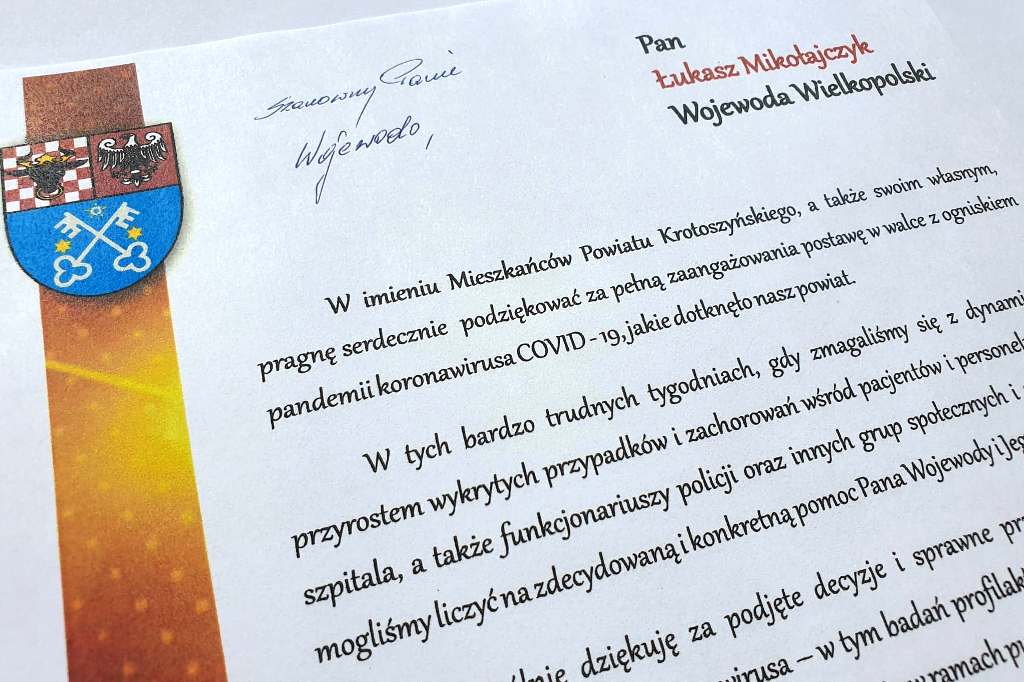 Szanowny Panie
Wojewodo,
Pan
Łukasz Mikołajczyk
Wojewoda Wielkopolski
W imieniu Mieszkańców Powiatu Krotoszyńskiego, a także swoim własnym,
pragnę serdecznie podziękować za pełną zaangażowania postawę w walce z ogniskiem
pandemii koronawirusa COVID - 19, jakie dotknęło nasz powiat.
W tych bardzo trudnych tygodniach, gdy zmagaliśmy się z dynami
przyrostem wykrytych przypadków i zachorowań wśród pacjentów i personel
szpitala, a także funkcjonariuszy policji oraz innych grup społecznych i
mogliśmy liczyć na zdecydowaną i konkretną pomoc Pana Wojewody i Jeg
ólnie dziękuję za podjęte decyzje i sprawne pr
wirusa – w tym badań profilak
w ramach p